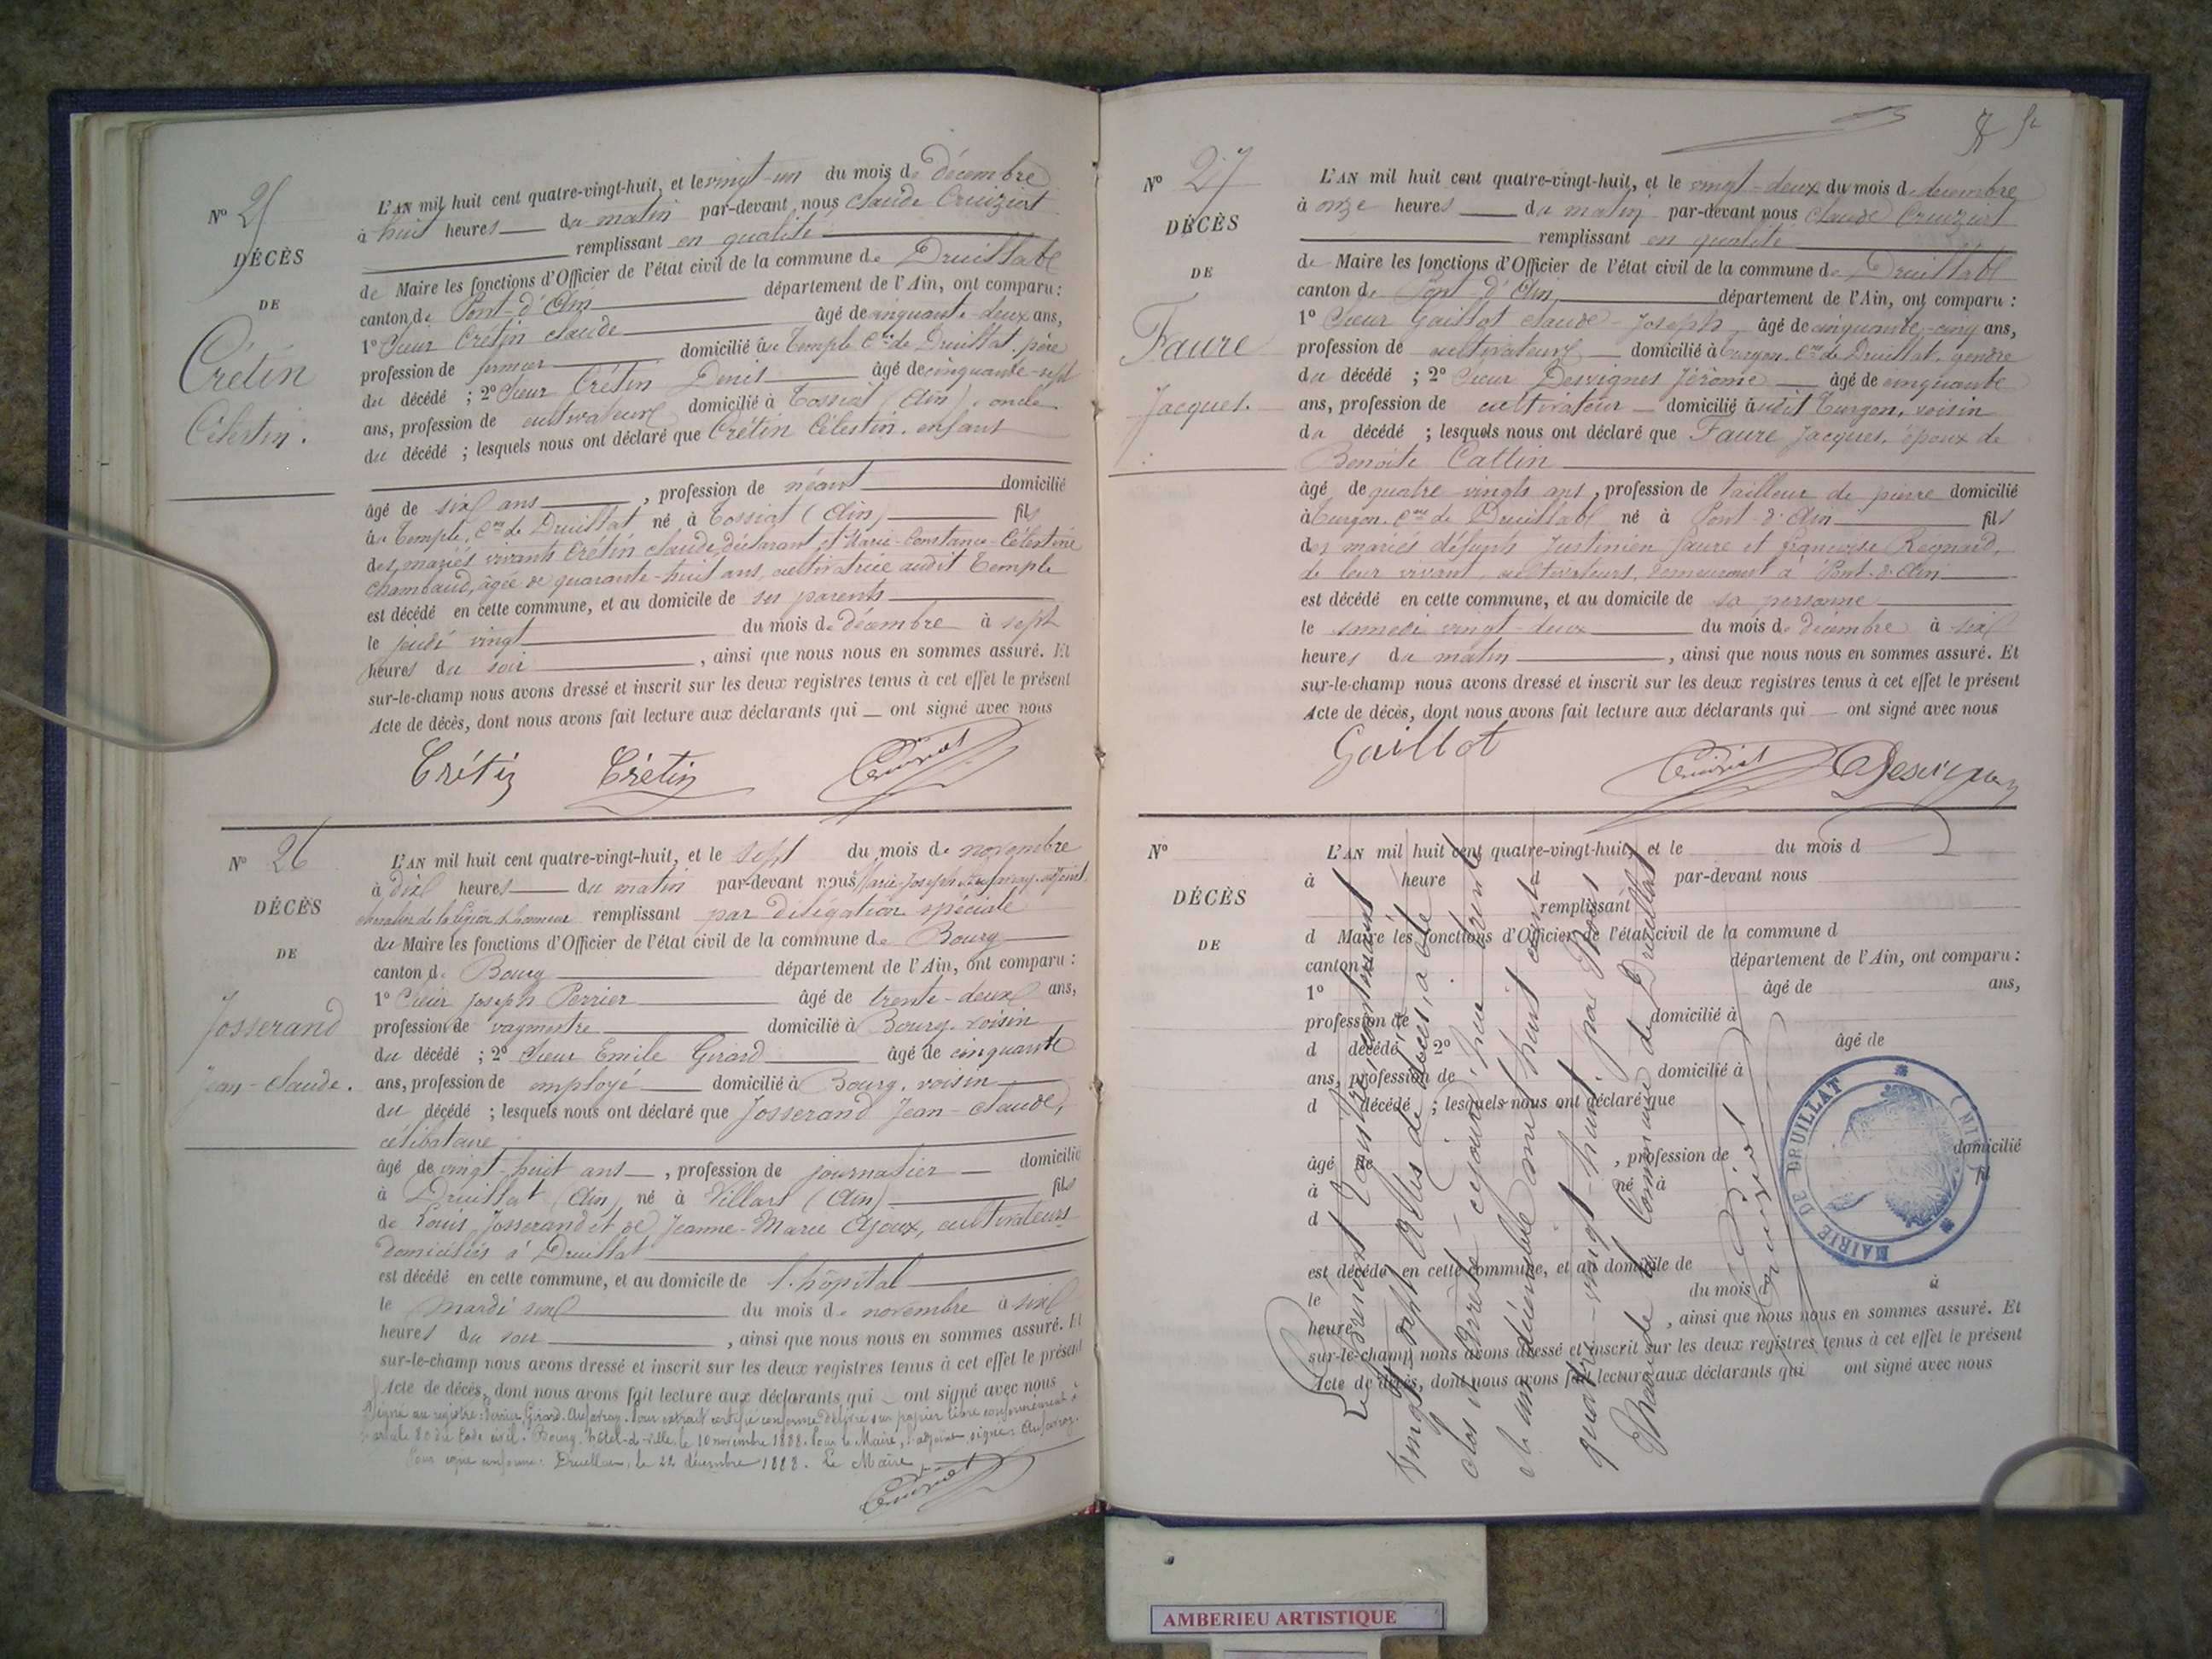 N° 25
DÉCÈS
DE
Crétin
Célestin.
L'AN mil huit cent quatre-vingt-huit, et le vingt-un du mois de décembre
à huit heures du matin par-devant nous Claude Cruiziat
remplissant en qualité
de Maire les fonctions d'Officier de l'état civil de la commune de Druillat
canton de Pont-d'Ain département de l'Ain, ont comparu :
1° Sieur Crétin Claude âgé de cinquante-deux ans,
profession de fermier domicilié au Temple Cne de Druillat, père
du décédé ; 2° Sieur Crétin Denis âgé de cinquante-sept
ans, profession de cultivateur domicilié à Tossiat (Ain), oncle
du décédé ; lesquels nous ont déclaré que Crétin Célestin, enfant
âgé de six ans , profession de néant domicilié
au Temple, Cne de Druillat né à Tossiat (Ain) fils
des mariés vivants Crétin Claude, déclarant et Marie-Constance-Célestine
Chambaud, âgée de quarante-huit ans, cultivatrice audit Temple
est décédé en cette commune, et au domicile de ses parents
le jeudi vingt du mois de décembre à sept
heures du soir , ainsi que nous nous en sommes assuré. Et
sur-le-champ nous avons dressé et inscrit sur les deux registres tenus à cet effet le présent
Acte de décès, dont nous avons fait lecture aux déclarants qui ont signé avec nous
Crétin Crétin Cruiziat
N° 26
DÉCÈS
DE
Josserand
Jean-Claude.
L'AN mil huit cent quatre-vingt-huit, et le sept du mois de novembre
à dix heures du matin par-devant nous Marie-Joseph Aufavray, adjoint,
chevalier de la légion d'honneur remplissant par délégation spéciale
du Maire les fonctions d'Officier de l'état civil de la commune de Bourg
canton de Bourg département de l'Ain, ont comparu :
1° Sieur Joseph Perrier âgé de trente-deux ans,
profession de vagmestre domicilié à Bourg, voisin
du décédé ; 2° Sieur Emile Girard âgé de cinquante
ans, profession de employé domicilié à Bourg, voisin
du décédé ; lesquels nous ont déclaré que Josserand Jean-Claude,
célibataire
âgé de vingt-huit ans , profession de journalier domicilié
à Druillat (Ain) né à Villars (Ain) fils
de Louis Josserand et de Jeanne-Marie Ajoux, cultivateurs
domiciliés à Druillat
est décédé en cette commune, et au domicile de l'hôpital
le mardi six du mois de novembre à six
heures du soir , ainsi que nous nous en sommes assuré. Et
sur-le-champ nous avons dressé et inscrit sur les deux registres tenus à cet effet le présent
Acte de décès, dont nous avons fait lecture aux déclarants qui ont signé avec nous
Signé au registre : Perrier, Girard, Aufavray. Pour extrait certifié conforme délivré sur papier libre conformément à
l'article 80 du Code civil. Bourg, hôtel-de-ville, le 10 novembre 1888. Pour le Maire, l'adjoint signé : Aufavray.
Pour copie conforme : Druillat, le 22 décembre 1888. Le Maire
Cruiziat
N° 27
DÉCÈS
DE
Faure
Jacques.
L'AN mil huit cent quatre-vingt-huit, et le vingt-deux du mois de décembre
à onze heures du matin par-devant nous Claude Cruiziat
remplissant en qualité
de Maire les fonctions d'Officier de l'état civil de la commune de Druillat
canton de Pont d'Ain département de l'Ain, ont comparu :
1° Sieur Gaillot Claude-Joseph, âgé de cinquante-cinq ans,
profession de cultivateur domicilié à Turgon, Cne de Druillat, gendre
du décédé ; 2° Sieur Desvignes Jérôme âgé de cinquante
ans, profession de cultivateur domicilié audit Turgon, voisin
du décédé ; lesquels nous ont déclaré que Faure Jacques, époux de
Benoite Cattin
âgé de quatre vingts ans , profession de tailleur de pierre domicilié
à Turgon, Cne de Druillat né à Pont-d'Ain fils
des mariés défunts Justinien Faure et Françoise Regnard,
de leur vivant, cultivateurs, demeurant à Pont-d'Ain
est décédé en cette commune, et au domicile de sa personne
le samedi vingt-deux du mois de décembre à six
heures du matin , ainsi que nous nous en sommes assuré. Et
sur-le-champ nous avons dressé et inscrit sur les deux registres tenus à cet effet le présent
Acte de décès, dont nous avons fait lecture aux déclarants qui ont signé avec nous
Gaillot Cruiziat Desvignes
N°
DÉCÈS
DE
L'AN mil huit cent quatre-vingt-huit, et le du mois d
à heure par-devant nous
remplissant
d Maire les fonctions d'Officier de l'état civil de la commune d
canton département de l'Ain, ont comparu :
1° âgé de ans,
profession de domicilié à
d décédé 2° âgé de
ans, profession de domicilié à
d décédé ; lesquels nous ont déclaré que
âgé de , profession de domicilié
à né à fil
d
est décédé en cette commune, et au domicile de
le du mois d à
heure , ainsi que nous nous en sommes assuré. Et
sur-le-champ nous avons dressé et inscrit sur les deux registres tenus à cet effet le présent
Acte de décès, dont nous avons fait lecture aux déclarants qui ont signé avec nous
Le présent registre contenant
vingt-sept Actes de décès, a été
clos et arrêté cejourd'hui trente
et un décembre mil huit cent
quatre-vingt-huit, par Nous
Maire de la Commune de Druillat
Cruiziat
MAIRIE DE DRUILLAT
(AIN)
AMBERIEU ARTISTIQUE